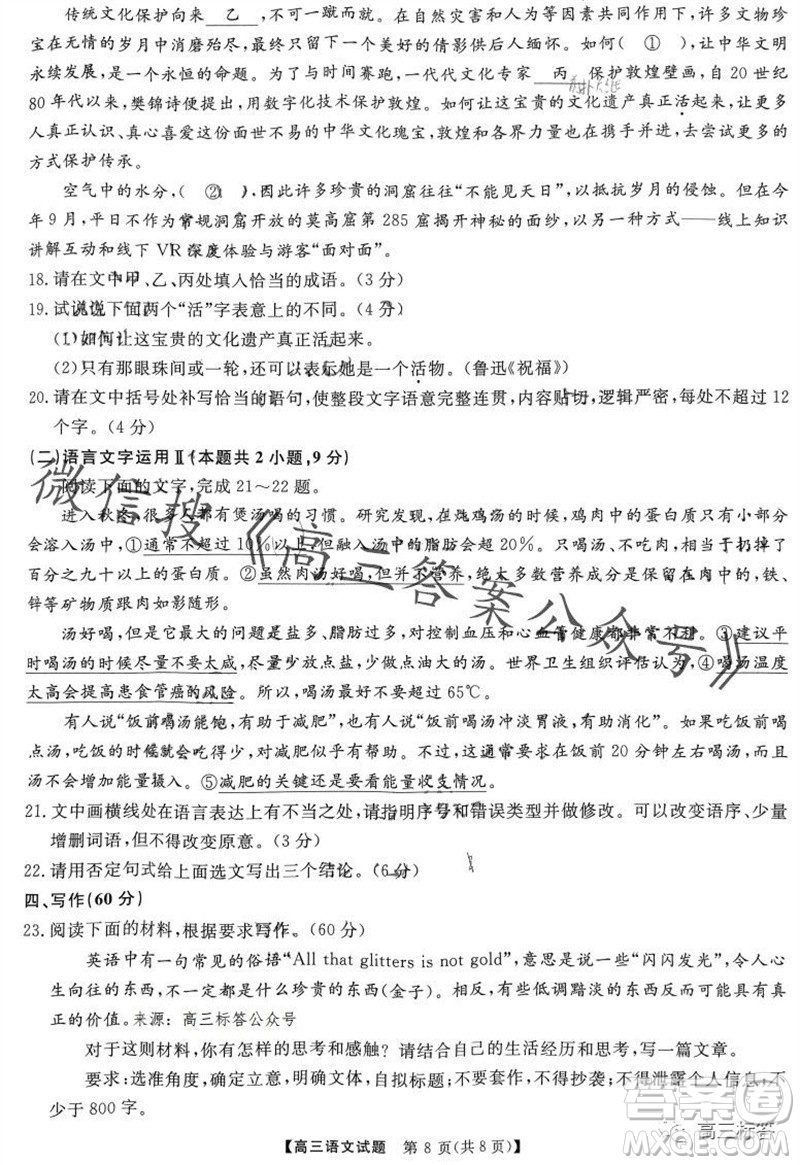 传统文化保护向来 乙 ,不可谓不难。在自然灾害和人为等因素共同作用下,许多文物珍
宝在无情的岁月中消磨殆尽,最终仅以一个美好的倩影供后人缅怀。如何( ① ),让中华文明
永续发展,是一个永恒的命题。为了与时间赛跑,一代代文化专家 丙 保护敦煌壁画,自20世纪
80年代以来,樊锦诗便提出,用数字化技术保护敦煌。如何让这宝贵的文化遗产真正活起来,让更多
人真正认识、真心喜爱这份面世不易的中华文化瑰宝,敦煌和各界力量也在携手并进,去尝试更多的
方式保护传承。
空气中的水分,( ② ),因此许多珍贵的洞窟往往“不能见天日”,以抵抗岁月的侵蚀。但在今
年9月,平日不作为常规洞窟开放的莫高窟第285窟揭开神秘的面纱,以另一种方式——线上知识
讲解互动和线下VR深度体验与游客“面对面”。
18.请在文中甲、乙、丙处填入恰当的成语。(3分)
19.试说说下面两个“活”字表意上的不同。(4分)
(1)如何让这宝贵的文化遗产真正活起来。
(2)只有那眼珠间或一轮,还可以表示她是一个活物。(鲁迅《祝福》)
20.请在文中括号处补写恰当的语句,使整段文字语意完整连贯,内容贴切,逻辑严密,每处不超过12
个字。(4分)
(二)语言文字运用Ⅱ(本题共2小题,9分)
阅读下面的文字,完成21~22题。
进入秋冬,很多人都有煲汤喝的习惯。研究发现,在炖鸡汤的时候,鸡肉中的蛋白质只有小部分
会溶入汤中,①通常不超过10%以上,但融入汤中的脂肪会超20%。只喝汤、不吃肉,相当于扔掉了
百分之九十以上的蛋白质。②虽然肉汤好喝,但并不营养,绝大多数营养成分是留在肉中的,铁、
锌等矿物质跟肉如影随形。
汤好喝,但是它最大的问题是盐多、脂肪过多,对控制血压和心血管健康都非常不利。③建议平
时喝汤的时候尽量不要太咸,可以少放点盐,少点油大的汤。世界卫生组织评估认为,④喝汤温度
太高会提高患食管癌的风险。所以,喝汤最好不要超过65℃。
有人说“饭前喝汤能饱,有助于减肥”,也有人说“饭后喝汤冲淡胃液,有助消化”。如果吃饭前喝
点汤,吃饭的时候就会少吃一点,对减肥似乎有帮助。不过,这通常需要在饭前20分钟左右去喝,喝
汤不会增加能量摄入。⑤减肥的关键还是要看能量收支情况。
21.文中画横线处在语言表达上有不当之处,请指明序号和错误类型并做修改。可以改变语序、少量
增删词语,但不得改变原意。(3分)
22.请用否定句式给上面选文写出三个结论。(6分)
四、写作(60分)
23.阅读下面的材料,根据要求写作。(60分)
英语中有一句常见的俗语“All that glitters is not gold”,意思是说一些“闪闪发光”,令人心
生向往的东西,不一定是什么珍贵的东西(金子)。而有些偶尔低调黯淡的东西反而或许有着真
正的价值。来源:高三标答公众号
对于这则材料,你有怎样的思考和感触?请结合自己的生活经历和思考,写一篇文章。
要求:选准角度,确定立意,明确文体,自拟标题;不要套作,不得抄袭;不得泄露个人信息,不
少于800字。
【高三语文试题 第8页(共8页)】
微信搜《高三答案公众号》
高三标答